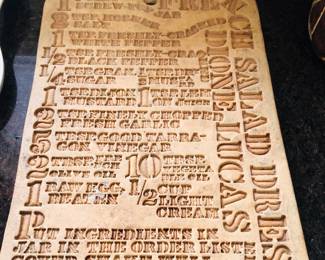 1 SCREW-TOP JAR
FRENCH SALAD DRES
DIONE LUCAS
1 TSP FRESHLY-CRACKED
WHITE PEPPER
1/2 TSP FRESHLY-CRAC
BLACK PEPPER
1/4 TSP GRAN
SUGAR
1 TSP DIJON
MUSTARD
1 TSP
LEMON JUICE
2 TSP FINELY CHOPPED
FRESH GARLIC
5 TBSP GOOD TARRA-
GON VINEGAR
2 TBSP
OLIVE OIL
10 TBSP
VEGETABLE OIL
1 RAW EGG-
BEATEN
1/2 CUP
LIGHT
CREAM
PUT INGREDIENTS IN
JAR IN THE ORDER LISTE
SHAKE WELL